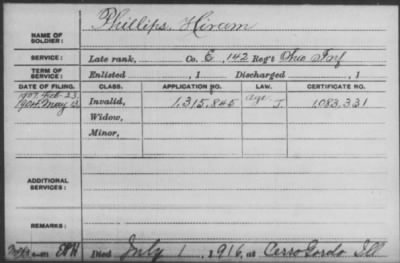 NAME OF SOLDIER: Phillips, Hiram
SERVICE: Late rank, Co. E, 142 Reg't Ohio Inf
TERM OF SERVICE: Enlisted , 1 Discharged , 1
DATE OF FILING. CLASS. APPLICATION NO. LAW. CERTIFICATE NO.
1907. Feb. 23.
1904. May 13 Invalid, 1,315,845 Age J. 1,083,331
Widow,
Minor,
ADDITIONAL SERVICES:
REMARKS:
Died July 1, 1916, at Cerro Gordo Ill